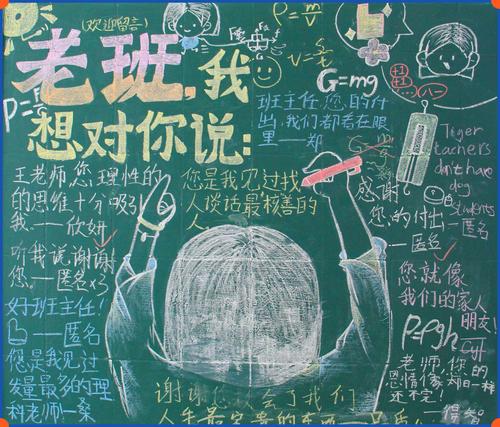 (欢迎留言)
老班,我
想对你说:
G=mg
班主任,您的付
出,我们都看在眼
里——郑
Tiger
teachers
don't have
dog
students
——匿名
王老师,您理性的
的思维十分吸引
我.——欣
您是我见过找
人谈话最"核善"的
人
感谢
您的付出
——匿名
听我说,谢谢
您.——匿名x3
您就像
我们的家人
朋友!
好班主任!
——匿名
P=ρgh
您是我见过
发量最多的理
科老师!——桑
老师,您的
恩情像却日一样
还不完!
谢谢您教会了我们